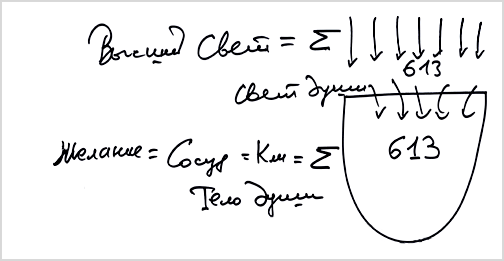 Высший свет = Σ
613
свет души
613
Желание = Сосуд = Кли = Σ
Тело души